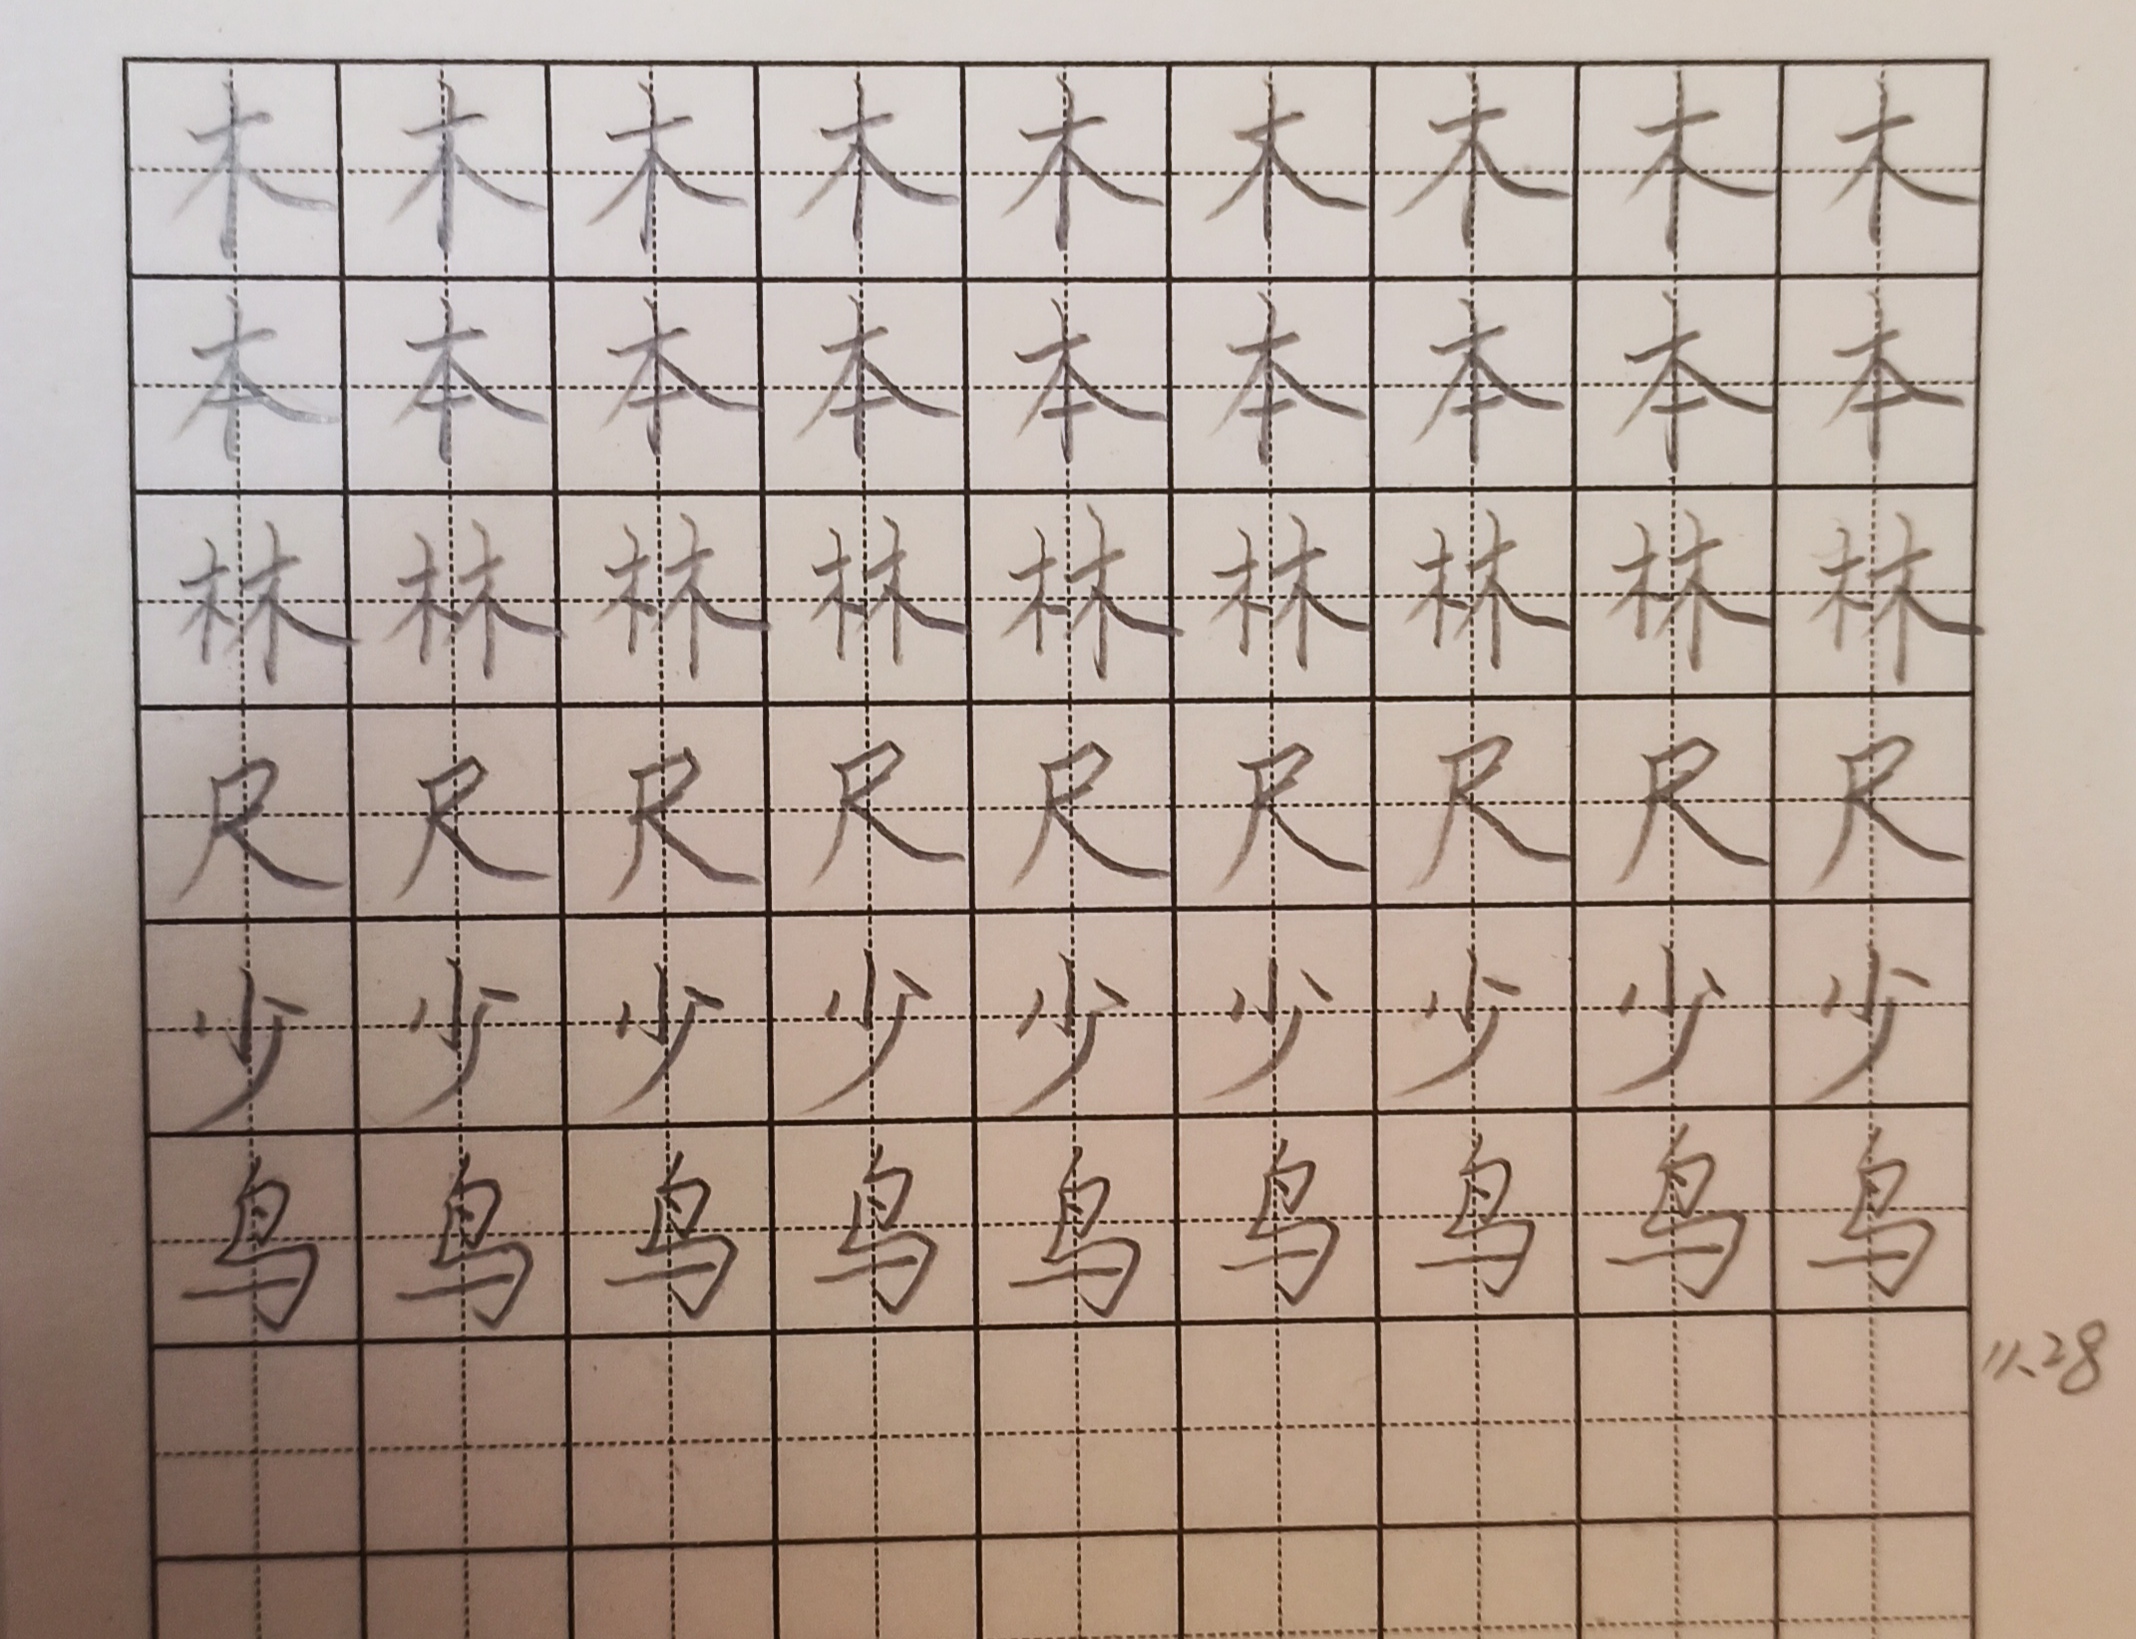 木木木木木木木木木
本本本本本本本本本
林林林林林林林林林
尺尺尺尺尺尺尺尺尺
少少少少少少少少少
鸟鸟鸟鸟鸟鸟鸟鸟鸟
11.28